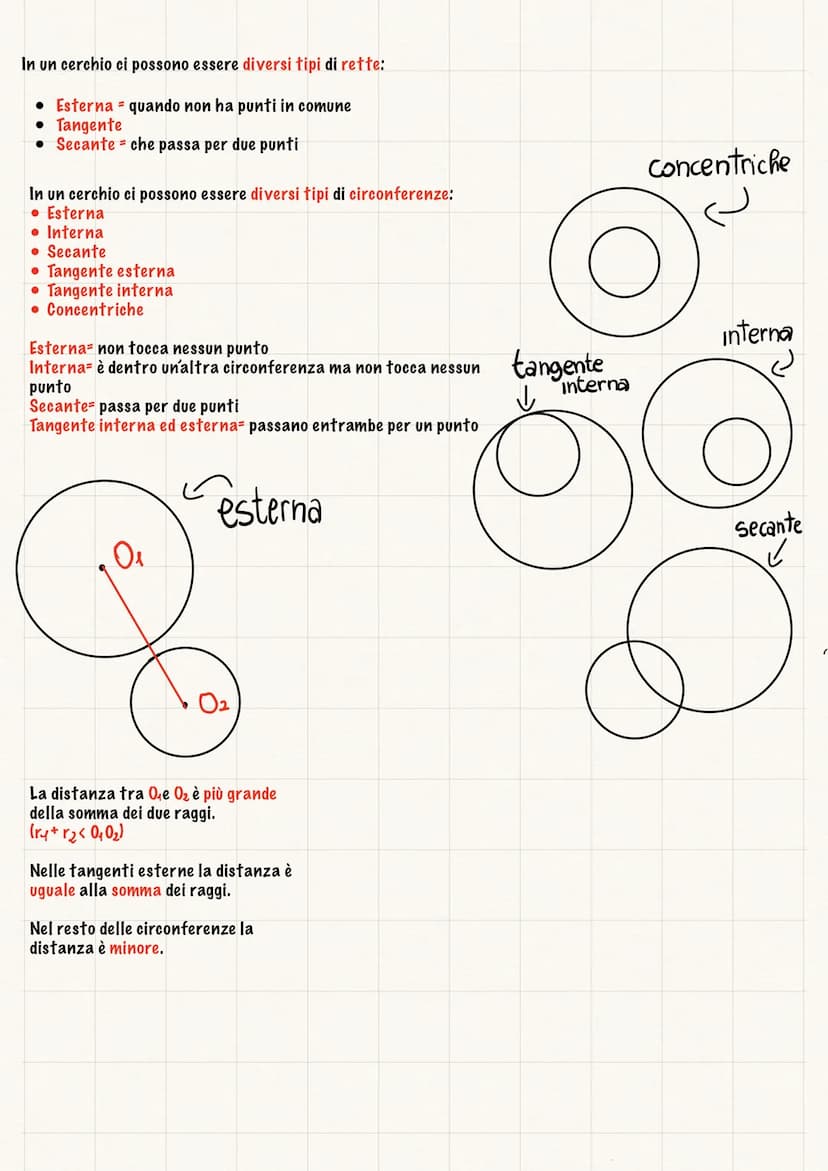 In un cerchio ci possono essere diversi tipi di rette:
• Esterna = quando non ha punti in comune
• Tangente
• Secante = che passa per due punti
In un cerchio ci possono essere diversi tipi di circonferenze:
• Esterna
• Interna
• Secante
• Tangente esterna
• Tangente interna
• Concentriche
Esterna= non tocca nessun punto
Interna= è dentro un'altra circonferenza ma non tocca nessun
punto
Secante= passa per due punti
Tangente interna ed esterna= passano entrambe per un punto
concentriche
interna
tangente
interna
secante
esterna
O1
O2
La distanza tra O1 e O2 è più grande
della somma dei due raggi.
(r1+ r2< O1O2)
Nelle tangenti esterne la distanza è
uguale alla somma dei raggi.
Nel resto delle circonferenze la
distanza è minore.